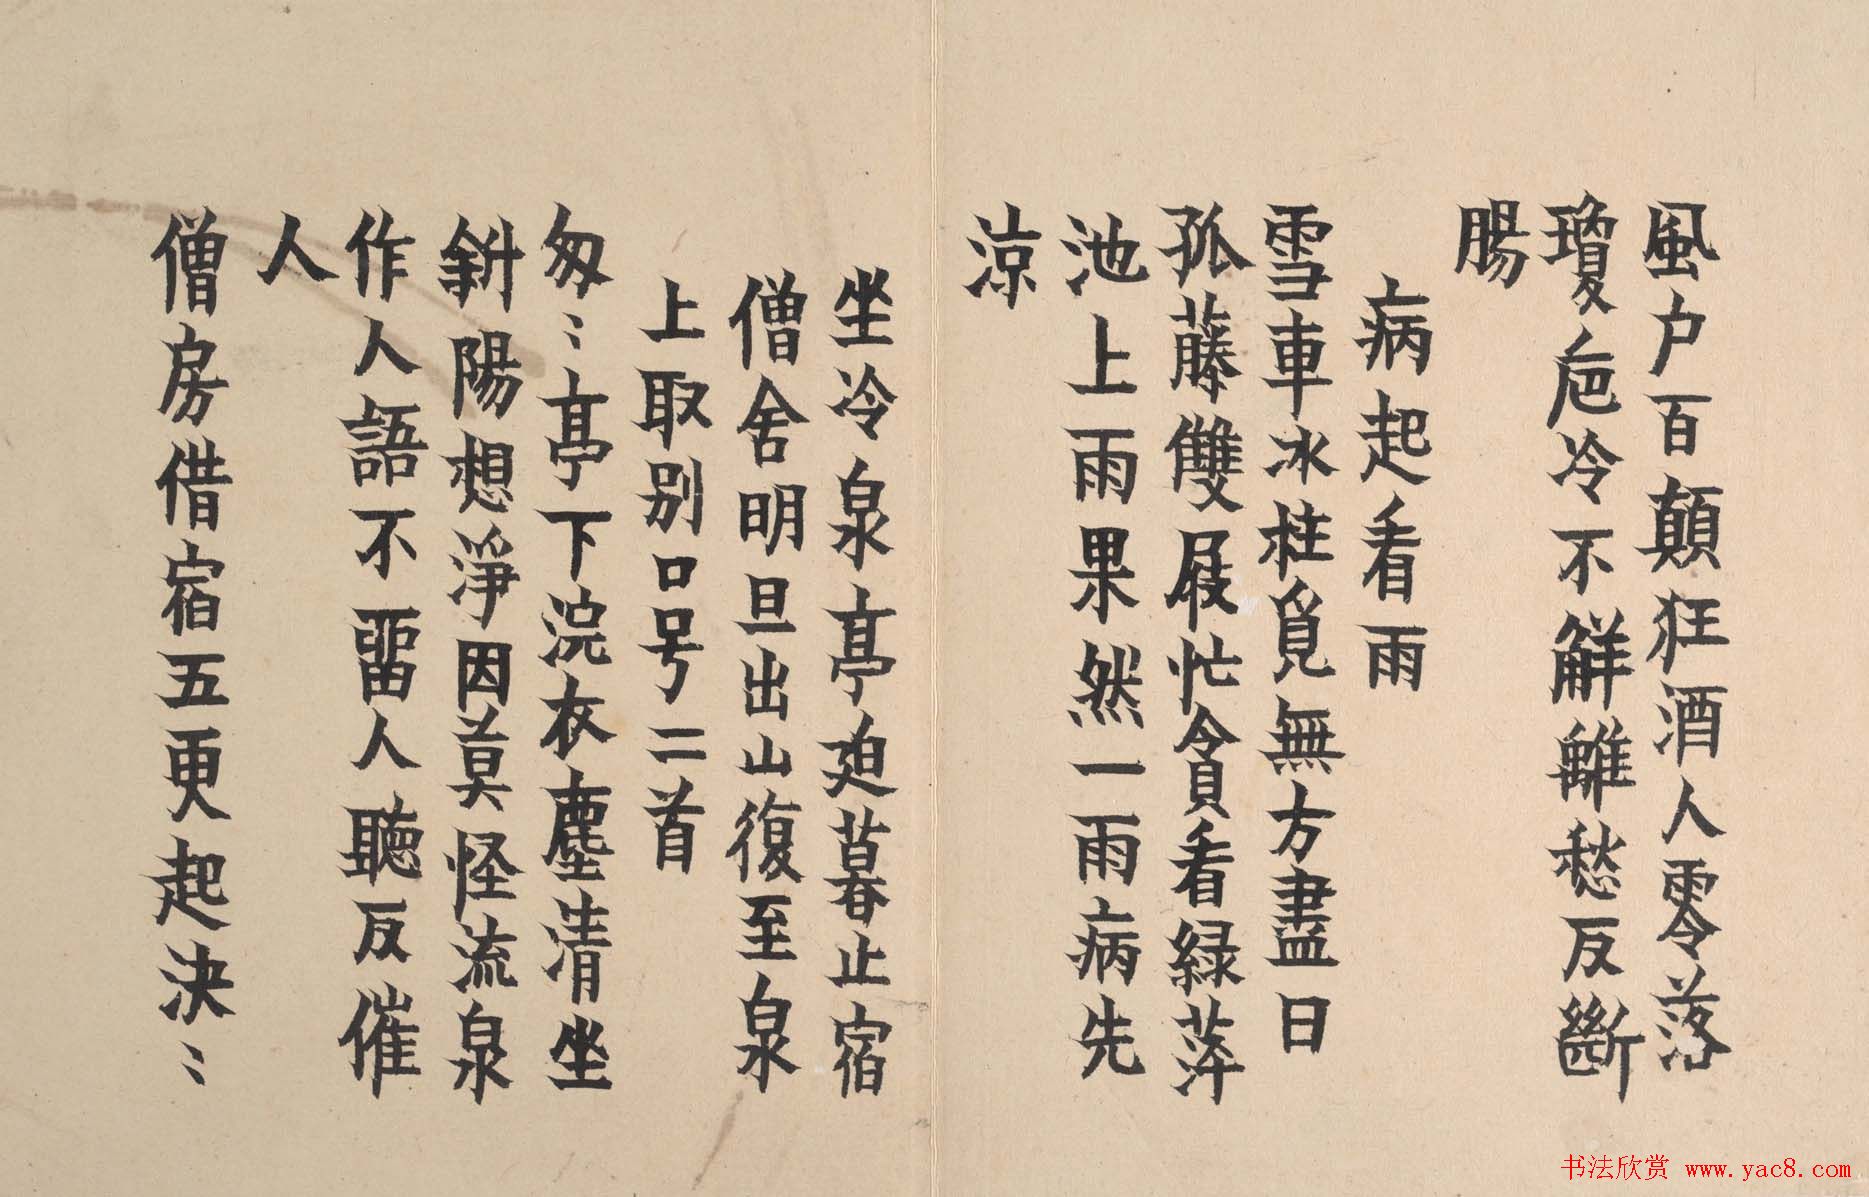 風户百顛狂酒人零落
瓊卮冷不解離愁反斷
腸
病起看雨
雪車冰柱覓無方盡日
孤藤雙屐忙貪看緑萍
池上雨果然一雨病先
涼
坐冷泉亭迨暮止宿
僧舍明旦出山復至泉
上取别口号二首
匆〻亭下浣衣塵清坐
斜陽想淨因莫怪流泉
作人語不畱人聽反催
人
僧房借宿五更起決〻
书法欣赏 www.yac8.com